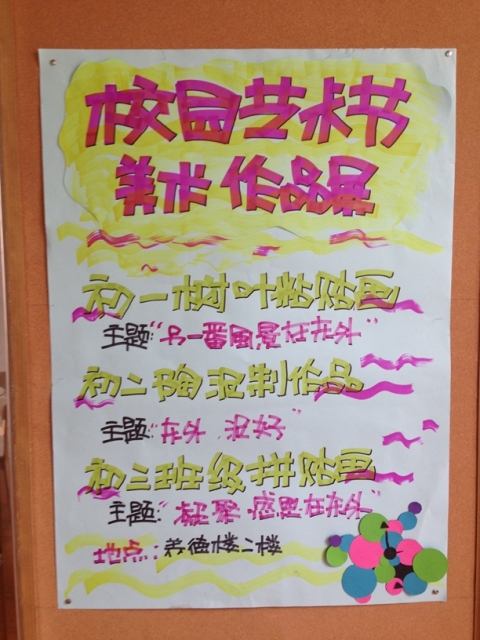 校园艺术节
美术作品展
初一树叶粘贴画
主题:“另一番風景在东外”
初二陶泥塑作品
主题:“东外 泥好”
初三班级拼贴画
主题:“凝聚·感恩在东外”
地点:德楼二楼